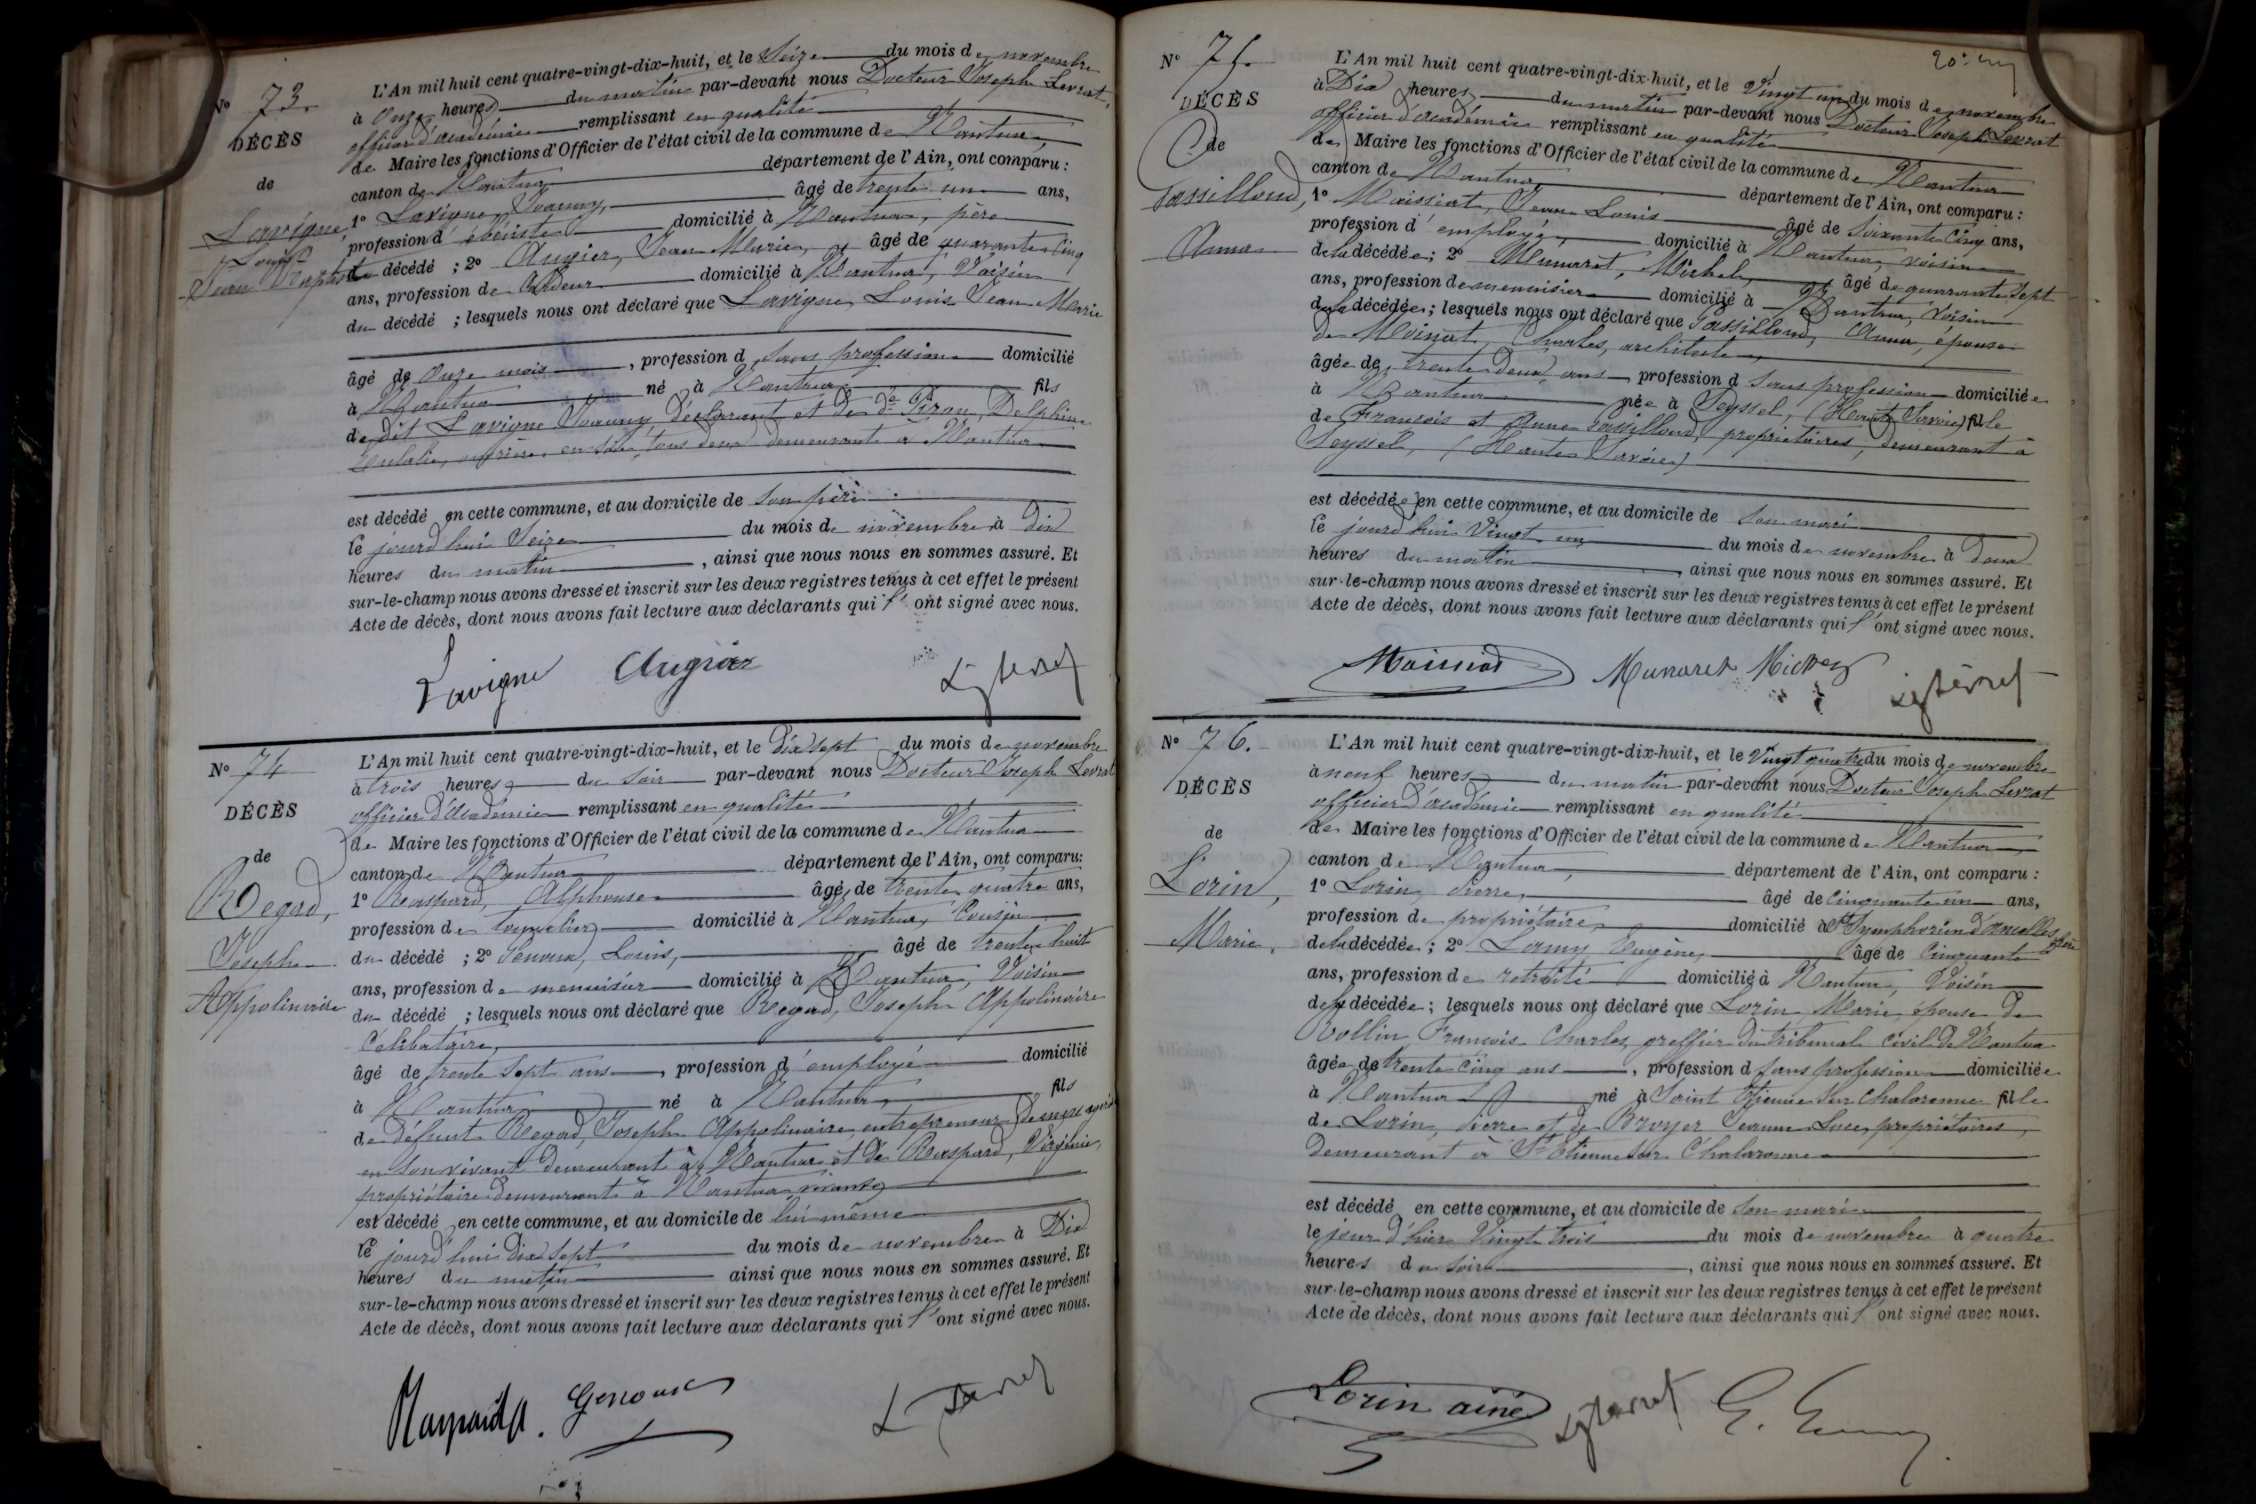 N° 73.
DÉCÈS
de
Lavigne,
Louis
Jean
L'An mil huit cent quatre-vingt-dix-huit, et le Seize du mois de novembre
à Onze heures du matin par-devant nous Docteur Joseph Levrat,
officier d'académie remplissant en qualité
de Maire les fonctions d'Officier de l'état civil de la commune de Nantua,
canton de Nantua département de l'Ain, ont comparu :
1° Lavigne Joanny, âgé de trente un ans,
profession d'ébéniste domicilié à Nantua, père
du décédé ; 2° Augier, Jean Marie, âgé de quarante cinq
ans, profession de domicilié à Nantua, Voisin
du décédé ; lesquels nous ont déclaré que Lavigne Louis Jean
âgé de Onze mois , profession d Sans profession domicilié
à Nantua né à Nantua fils
de dit Lavigne Joanny, déclarant et de de Piron, Delphine
Eulalie, ouvrière en soie, tous deux demeurants à Nantua
est décédé en cette commune, et au domicile de Son père
le jourd'hui Seize du mois de novembre à dix
heures du matin , ainsi que nous nous en sommes assuré. Et
sur-le-champ nous avons dressé et inscrit sur les deux registres tenus à cet effet le présent
Acte de décès, dont nous avons fait lecture aux déclarants qui l'ont signé avec nous.
Lavigne Augier
N° 74
DÉCÈS
de
Regad,
Joseph
Appolinaire
L'An mil huit cent quatre-vingt-dix-huit, et le dix sept du mois de novembre
à trois heures du soir par-devant nous Docteur Joseph Levrat
officier d'Académie remplissant en qualité
de Maire les fonctions d'Officier de l'état civil de la commune de Nantua
canton de Nantua département de l'Ain, ont comparu:
1° Raspard, Alphonse âgé de trente quatre ans,
profession de tonnelier domicilié à Nantua, Cousin
du décédé ; 2° Genoux, Louis, âgé de trente huit
ans, profession de menuisier domicilié à Nantua, Voisin
du décédé ; lesquels nous ont déclaré que Regad, Joseph Appolinaire
Célibataire,
âgé de trente sept ans , profession d'employé domicilié
à Nantua né à Nantua, fils
de défunt Regad, Joseph Appolinaire, entrepreneur de
en Son vivant demeurant à Nantua et de Raspard, Virginie,
propriétaire demeurant à Nantua
est décédé en cette commune, et au domicile de lui même
le jourd'hui dix sept du mois de novembre à Dix
heures du matin ainsi que nous nous en sommes assuré. Et
sur-le-champ nous avons dressé et inscrit sur les deux registres tenus à cet effet le présent
Acte de décès, dont nous avons fait lecture aux déclarants qui l'ont signé avec nous.
Genoux
N° 75.
DÉCÈS
de
Passilloud,
Anna
L'An mil huit cent quatre-vingt-dix-huit, et le Vingt un du mois de novembre
à Dix heures du matin par-devant nous Docteur Joseph Levrat
officier d'académie remplissant en qualité
de Maire les fonctions d'Officier de l'état civil de la commune de Nantua
canton de Nantua département de l'Ain, ont comparu :
1° Moissiat, Jean Louis âgé de Soixante cinq ans,
profession d'employé, domicilié à Nantua, voisin
de la décédée ; 2° Munaret, Michel, âgé de quarante sept
ans, profession de menuisier domicilié à Nantua, Voisin
de la décédée ; lesquels nous ont déclaré que Passilloud, Anna, épouse
de Moinat, Charles, architecte,
âgée de trente deux ans profession d Sans profession domiciliée
à Nantua née à Seyssel, (Haute Savoie) fille
de François et Anne Passilloud, propriétaires, demeurant à
Seyssel, (Haute Savoie)
est décédée en cette commune, et au domicile de Son mari
le jourd'hui Vingt un du mois de novembre à deux
heures du matin , ainsi que nous nous en sommes assuré. Et
sur-le-champ nous avons dressé et inscrit sur les deux registres tenus à cet effet le présent
Acte de décès, dont nous avons fait lecture aux déclarants qui l'ont signé avec nous.
Munaret Michel
N° 76.
DÉCÈS
de
Lorin,
Marie.
L'An mil huit cent quatre-vingt-dix-huit, et le Vingt quatre du mois de novembre
à neuf heures du matin par-devant nous Docteur Joseph Levrat
officier d'académie remplissant en qualité
de Maire les fonctions d'Officier de l'état civil de la commune de Nantua,
canton de Nantua, département de l'Ain, ont comparu :
1° Lorin, Pierre, âgé de cinquante un ans,
profession de propriétaire, domicilié à St Symphorien d'Ancelles,
de la décédée ; 2° Lamy Eugène, âgé de Cinquante
ans, profession de retraité domicilié à Nantua, Voisin
de la décédée ; lesquels nous ont déclaré que Lorin, Marie, épouse de
Rollin, François Charles, greffier du tribunal civil de Nantua
âgée de trente cinq ans , profession d sans profession domiciliée
à Nantua né à Saint Etienne sur Chalaronne fille
de Lorin, Pierre et de Broyer Jeanne Luce, propriétaires,
demeurant à St Etienne sur Chalaronne
est décédé en cette commune, et au domicile de Son mari
le jour d'hier Vingt trois du mois de novembre à quatre
heures du soir , ainsi que nous nous en sommes assuré. Et
sur-le-champ nous avons dressé et inscrit sur les deux registres tenus à cet effet le présent
Acte de décès, dont nous avons fait lecture aux déclarants qui l'ont signé avec nous.
Lorin ainé